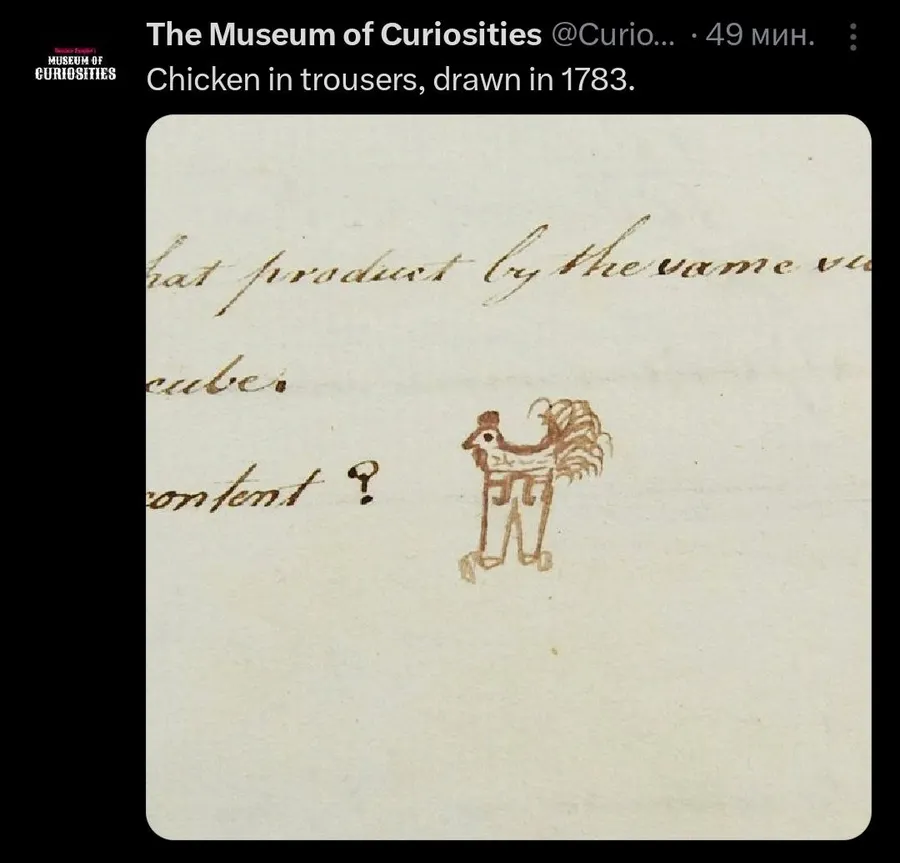 The Museum of Curiosities @Curio... · 49 мин.
MUSEUM OF
CURIOSITIES
Chicken in trousers, drawn in 1783.
hat product by the same
cube.
content ?